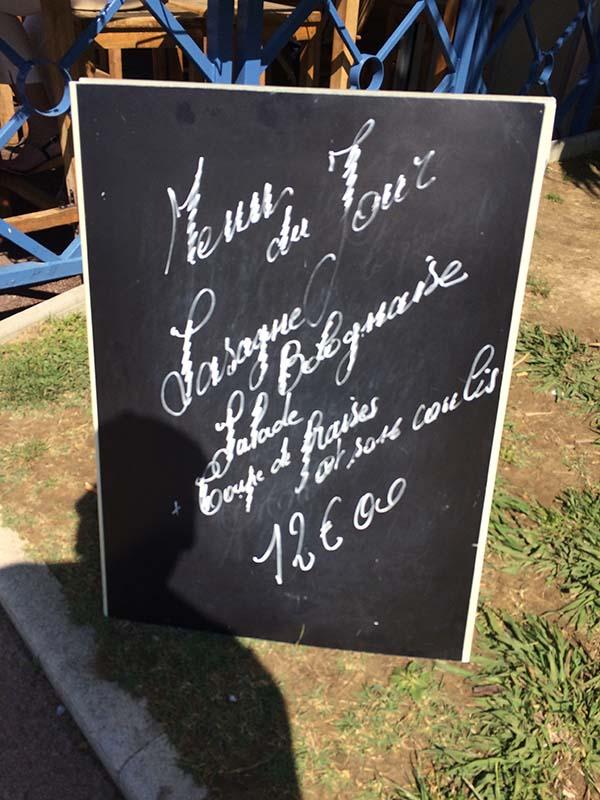 Menu du Jour
Lasagne
Bolognaise
Salade
Coupe de fraises
et son coulis
12€00